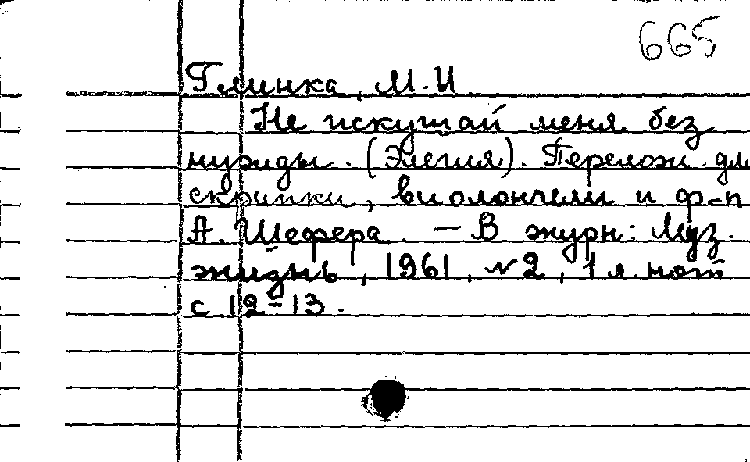 665
Глинка, М.И
Не искушай меня без
нужды. (Элегия). Перелож. дл
скрипки, виолончели и ф-п
А. Шефера. – В журн: Муз.
жизнь, 1961, №2, 1 л. нот
с 12-13.